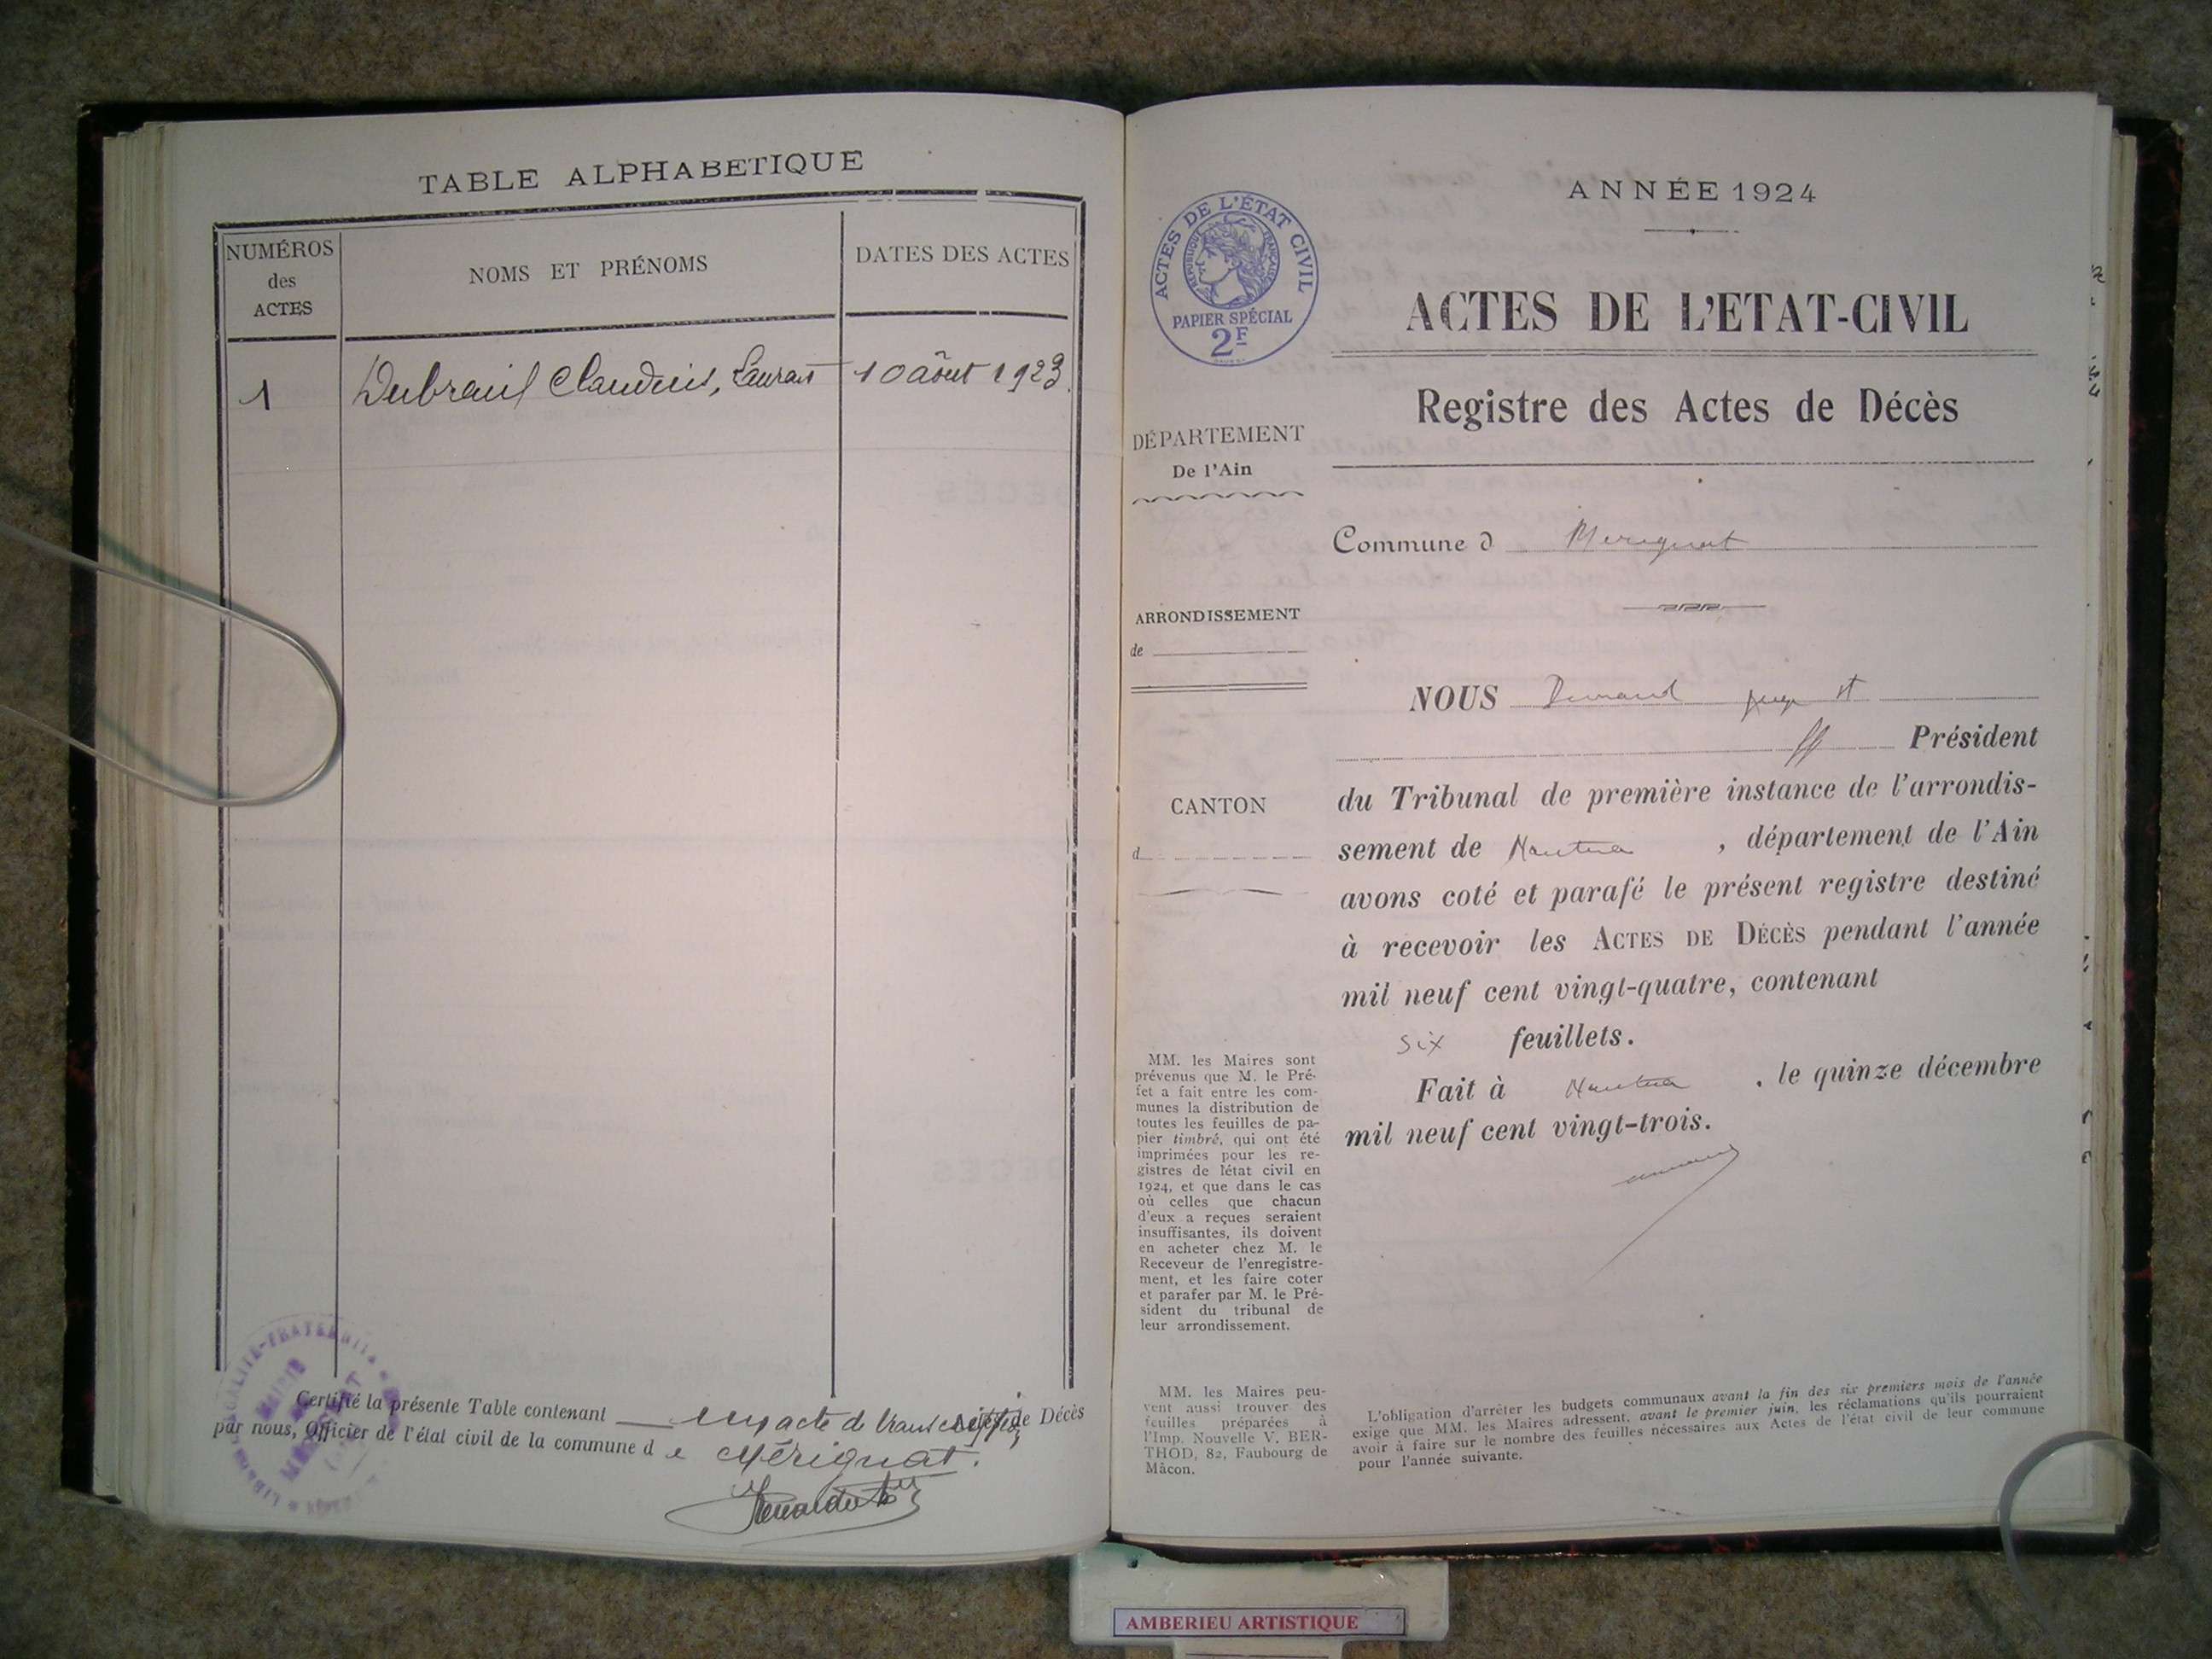 TABLE ALPHABETIQUE
NUMÉROS
des
ACTES
NOMS ET PRÉNOMS
DATES DES ACTES
1 Dubreuil Claudius, Laurent 10 août 1923.
Certifié la présente Table contenant un acte de transcription de Décès
par nous, Officier de l'état civil de la commune de Mérignat.
ANNÉE 1924
ACTES DE L'ÉTAT CIVIL
RÉPUBLIQUE FRANÇAISE
PAPIER SPÉCIAL
2F
ACTES DE L'ETAT-CIVIL
Registre des Actes de Décès
DÉPARTEMENT
De l'Ain
Commune d Merignat
ARRONDISSEMENT
de
NOUS
Président
CANTON
d
du Tribunal de première instance de l'arrondis-
sement de Nantua, département de l'Ain
avons coté et parafé le présent registre destiné
à recevoir les ACTES DE DÉCÈS pendant l'année
mil neuf cent vingt-quatre, contenant
six feuillets.
Fait à Nantua, le quinze décembre
mil neuf cent vingt-trois.
MM. les Maires sont
prévenus que M. le Pré-
fet a fait entre les com-
munes la distribution de
toutes les feuilles de pa-
pier timbré, qui ont été
imprimées pour les re-
gistres de l'état civil en
1924, et que dans le cas
où celles que chacun
d'eux a reçues seraient
insuffisantes, ils doivent
en acheter chez M. le
Receveur de l'enregistre-
ment, et les faire coter
et parafer par M. le Pré-
sident du tribunal de
leur arrondissement.
MM. les Maires peu-
vent aussi trouver des
feuilles préparées à
l'Imp. Nouvelle V. BER-
THOD, 82, Faubourg de
Mâcon.
L'obligation d'arrêter les budgets communaux avant la fin des six premiers mois de l'année
exige que MM. les Maires adressent, avant le premier juin, les réclamations qu'ils pourraient
avoir à faire sur le nombre des feuilles nécessaires aux Actes de l'état civil de leur commune
pour l'année suivante.
AMBERIEU ARTISTIQUE